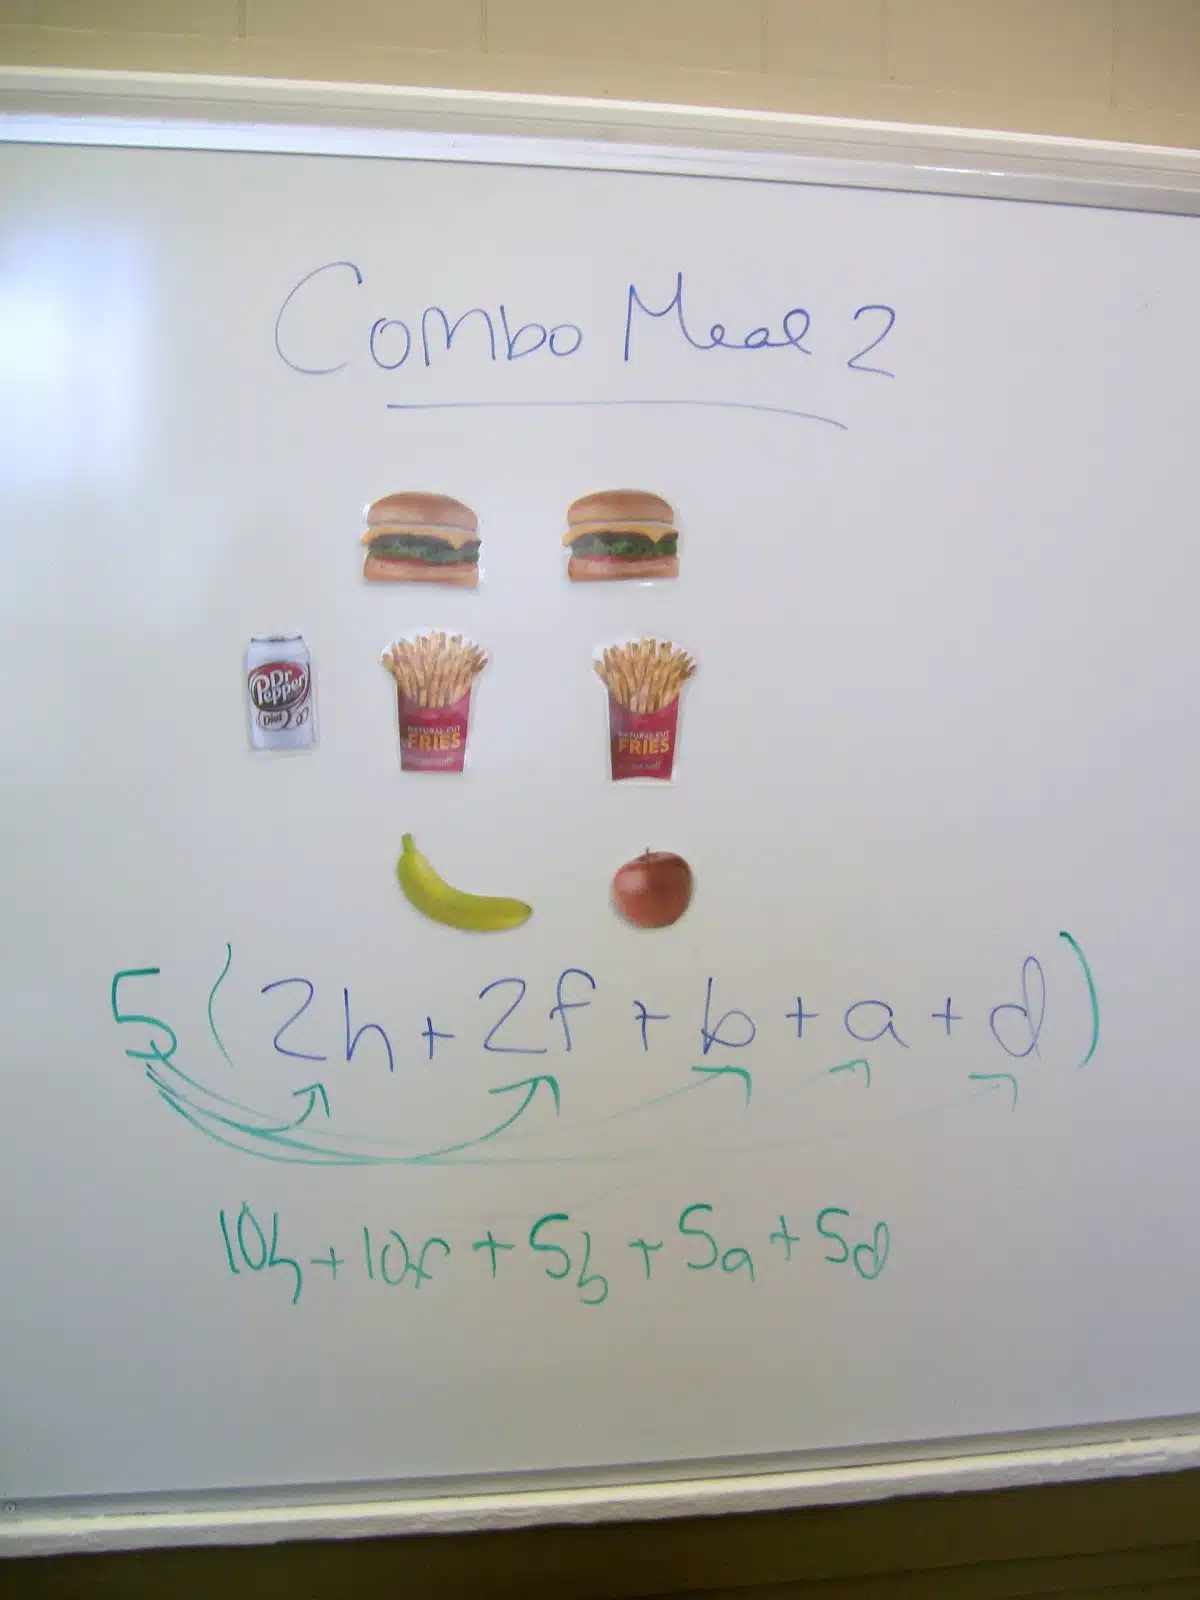 Combo Meal 2
Dr Pepper
Diet
NATURAL-CUT FRIES
NATURAL-CUT FRIES
5(2h+2f+b+a+d)
10h+10f+5b+5a+5d